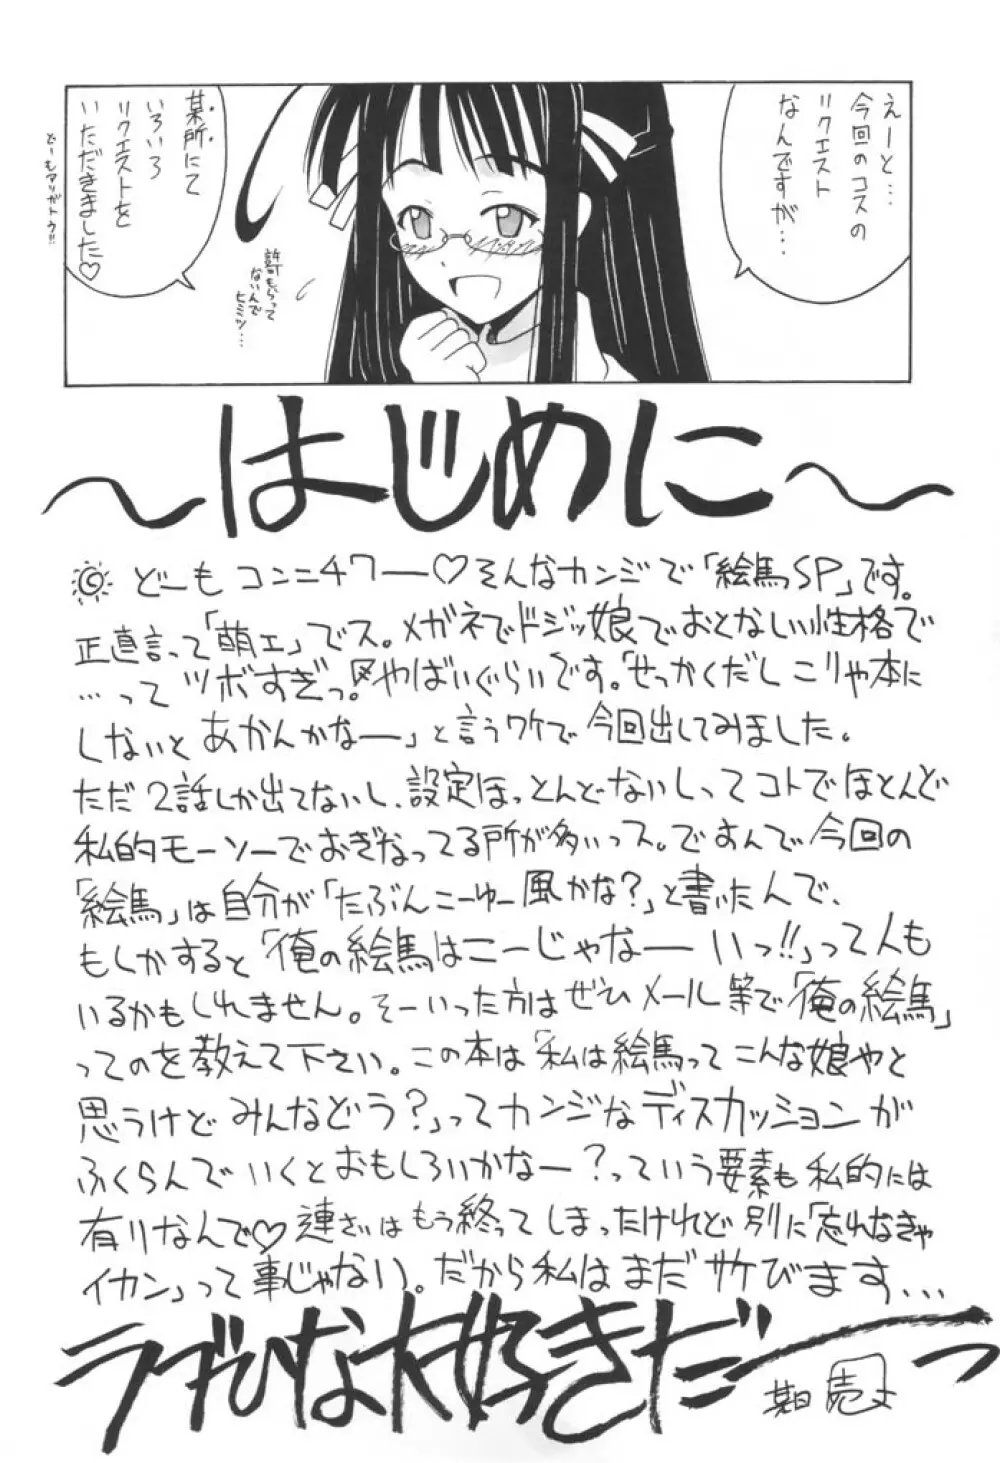 えーと…
今回のコスの
リクエスト
なんですが…
某所にて
いろいろ
リクエストを
いただきました♡
どーもアリガトウ!!
許可もらって
ないんで
ヒミツ…
～はじめに～
どーも コンニチワー♡そんなカンジで「絵馬SP」です。
正直言って「萌エ」でス。メガネでドジッ娘でおとなしい性格で
…って ツボすぎっ。やばいぐらいです。「せっかくだし こりゃ本に
しないと あかんかなー」と言うワケで 今回出してみました。
ただ2話しか出てないし、設定ほっとんどないしってコトでほとんど
私的モーソーでおぎなってる所が多いっス。ですんで今回の
「絵馬」は自分が「たぶんこーゆー風かな?」と書いたんで、
もしかすると「俺の絵馬はこーじゃなー いっ!!」って人も
いるかもしれません。そーいった方はぜひメール等で「俺の絵馬」
ってのを教えて下さい。この本は「私は絵馬って こんな娘やと
思うけど みんなどう?」ってカンジなディスカッションが
ふくらんで いくとおもしろいかなー?っていう要素も私的には
有りなんで♡ 連ざいはもう終ってしまったけれど 別に「忘れなきゃ
イカン」って事じゃない。だから私は まだサケびます…
ラブひな大好きだーっ